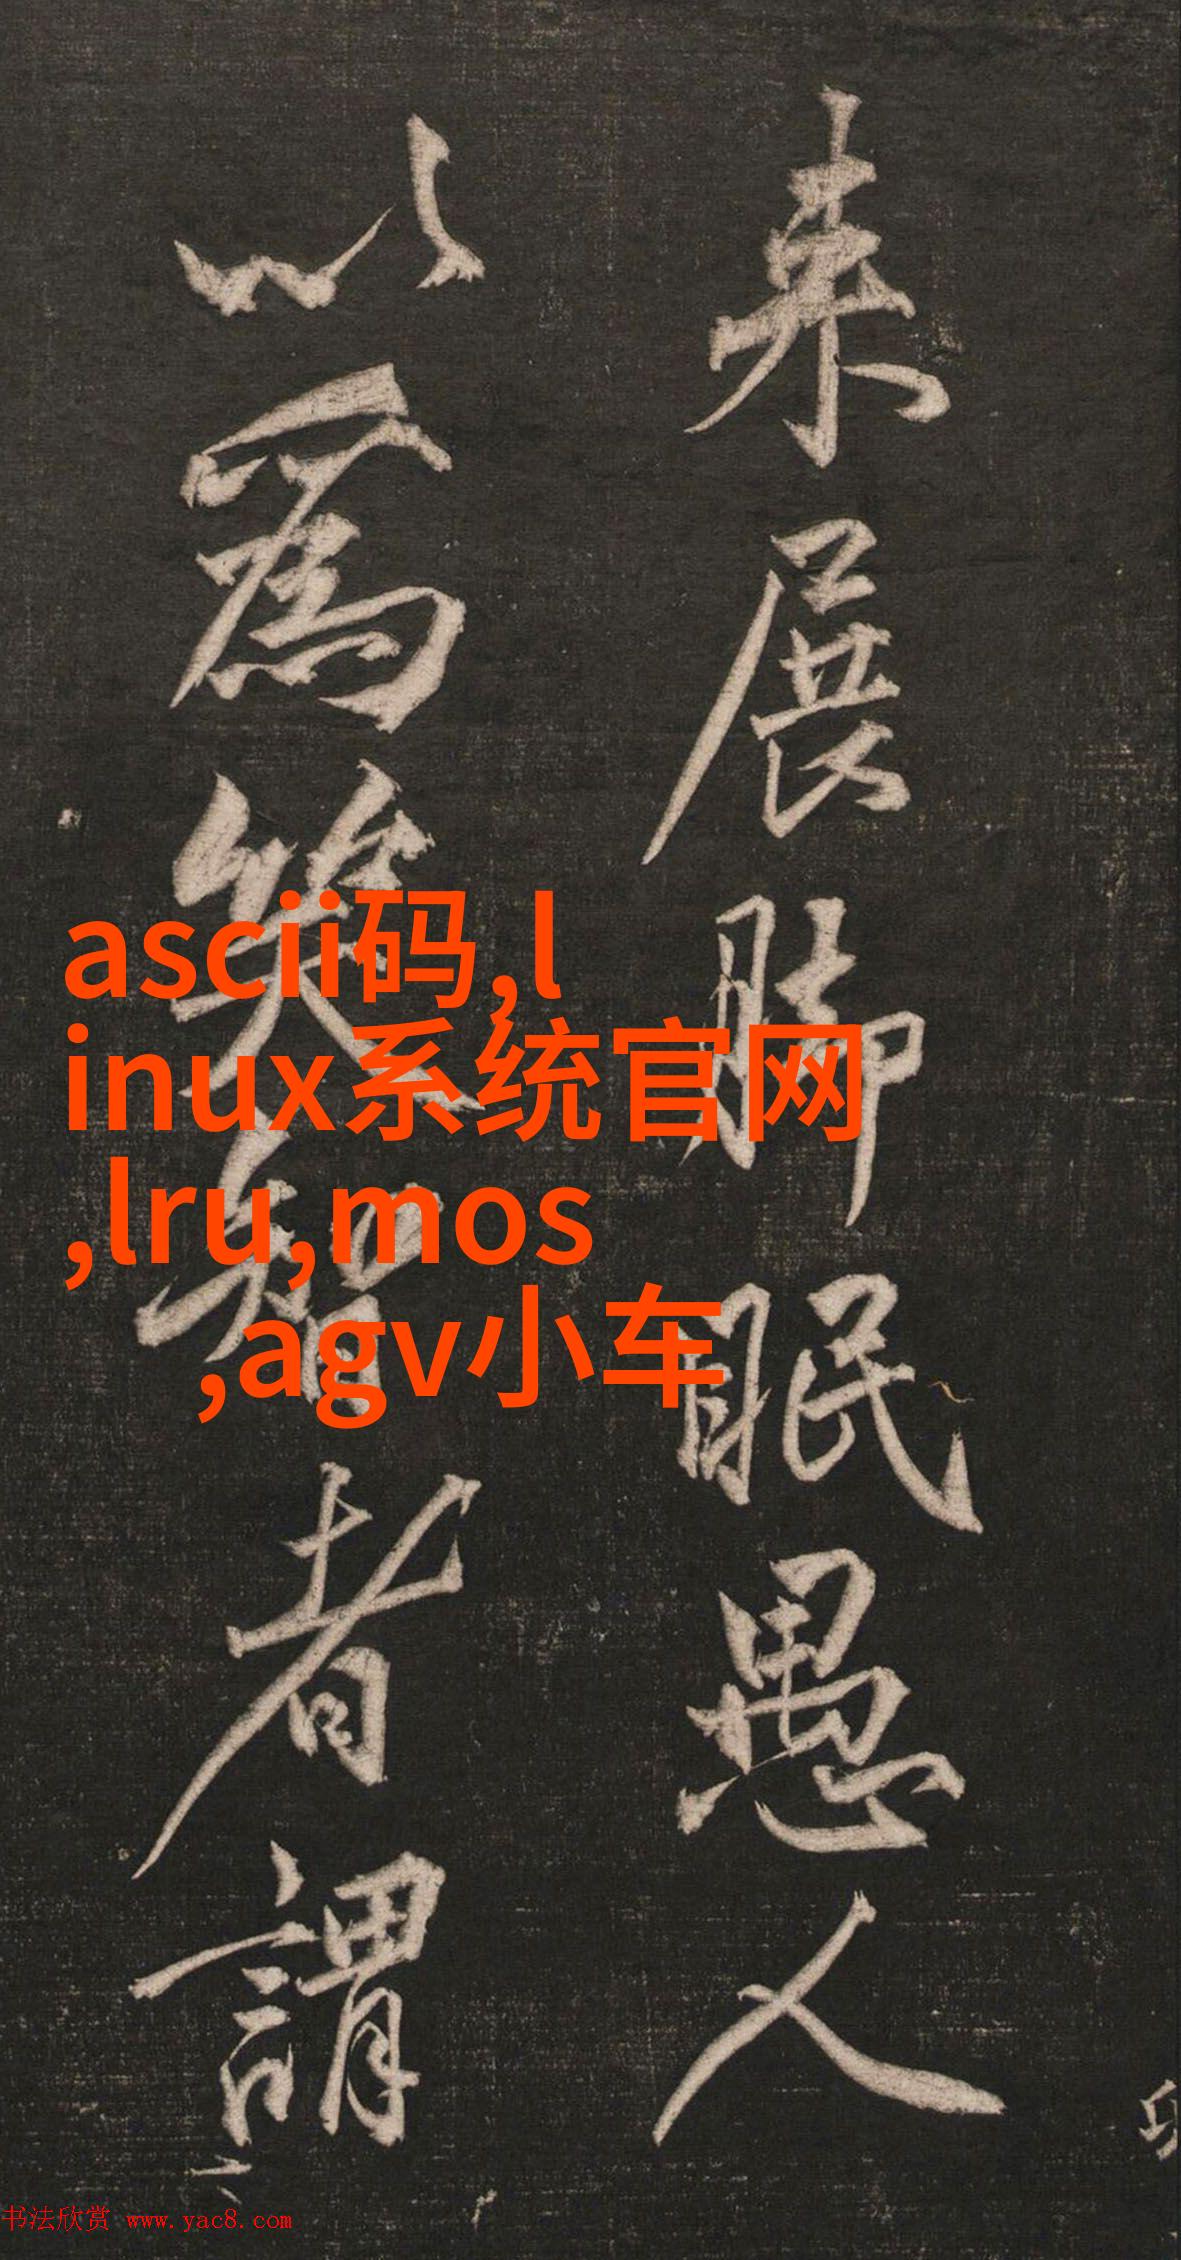 来展脚眠愚人
以為笑智者謂
ascii码,l
inux系统官网
,lru,mos
,agv小车
书法欣赏 www.yac8.com